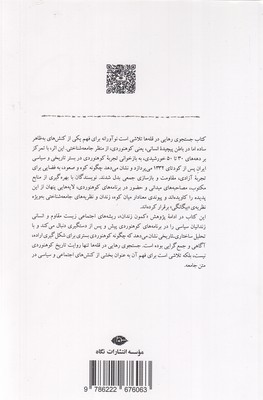 کتاب جستجوی رهایی در قله‌ها تلاشی است نوآورانه برای فهم یکی از کنش‌های به‌ظاهر
ساده اما در باطن پیچیدهٔ انسانی، یعنی کوهنوردی، از منظر جامعه‌شناختی. این اثر، با تمرکز
بر دهه‌های ۳۰ تا ۵۰ خورشیدی، به بازخوانی تجربهٔ کوهنوردی در بستر تاریخی و سیاسی
ایران پس از کودتای ۱۳۳۲ می‌پردازد و نشان می‌دهد چگونه کوه و صعود، به فضایی برای
تجربهٔ آزادی، مقاومت و بازسازی جمعی بدل شدند. نویسندگان با بهره‌گیری از منابع
مکتوب، مصاحبه‌های میدانی و حضور در برنامه‌های کوهنوردی، لایه‌هایی پنهان از این
پدیده را کاویده‌اند و پیوندی معنادار میان کوه، زندان و نظریه‌های جامعه‌شناختی به‌ویژه
نظریه‌ی «بیگانگی» برقرار کرده‌اند.
این کتاب در ادامهٔ پژوهش «کمون زندان»، ریشه‌های اجتماعی زیست مقاوم و انسانی
زندانیان سیاسی را در برنامه‌های کوهنوردی پیش و پس از دستگیری دنبال می‌کند و با
تحلیل ساختاری‌ـ‌تاریخی نشان می‌دهد که چگونه کوهنوردی بستری برای شکل‌گیری اراده،
آگاهی و جمع‌گرایی بوده است. جستجوی رهایی در قله‌ها تنها روایت تاریخ کوهنوردی
نیست، بلکه تلاشی است برای فهم آن به عنوان بخشی از کنش‌های اجتماعی و سیاسی در
متن جامعه.
مؤسسه انتشارات نگاه
9 786222 676063